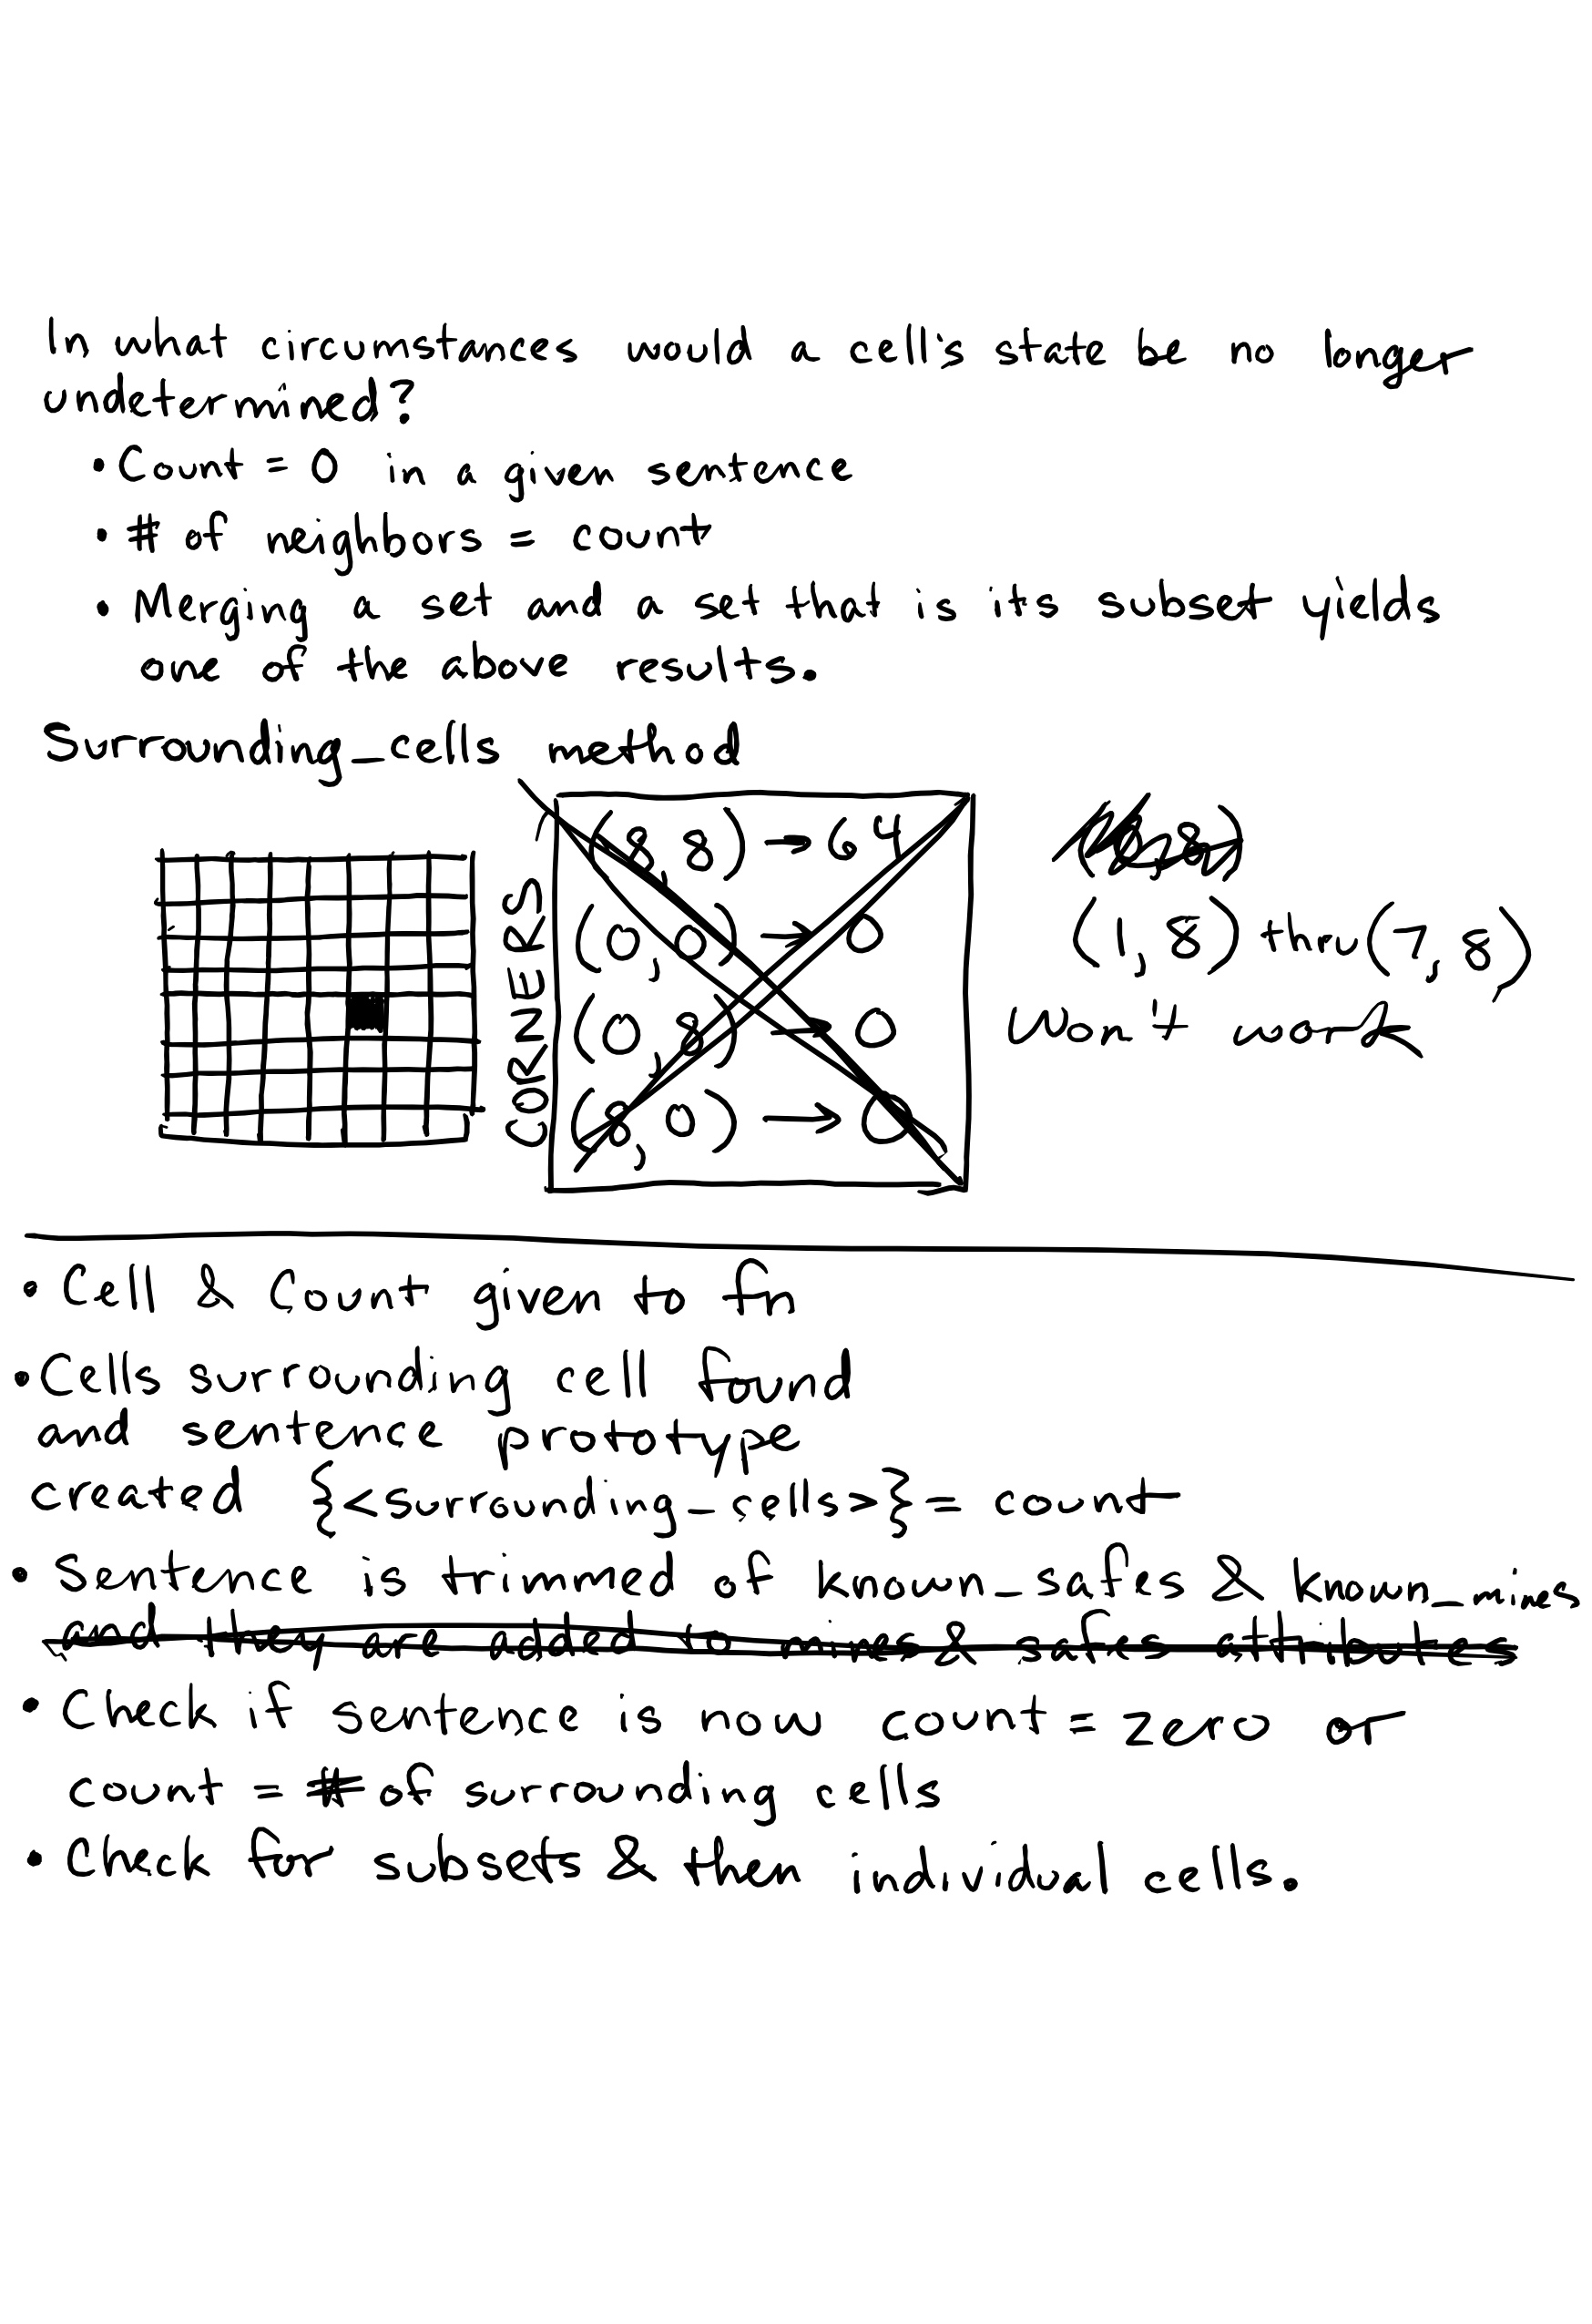 In what circumstances would a cell's state be no longer
undetermined?
• Count = 0 in a given sentence
• # of neighbors = count
• Merging a set and a set that is its subset yields
one of the above results.
Surrounding_cells method
CORNERS
(8, 8) → 64
(0, 0) → 0
(0, 8) → 0
(8, 0) → 0
(1, 8) thru (7, 8)
won't work
• Cell & Count given to fn
• Cells surrounding cell found
and sentence prototype
created {<surrounding_cells>} = count
• Sentence is trimmed of known_safes & known_mines
and they are added to mines & safes attributes
• Check if sentence is now count = zero or
count = # of surrounding cells
• Check for subsets & then individual cells.